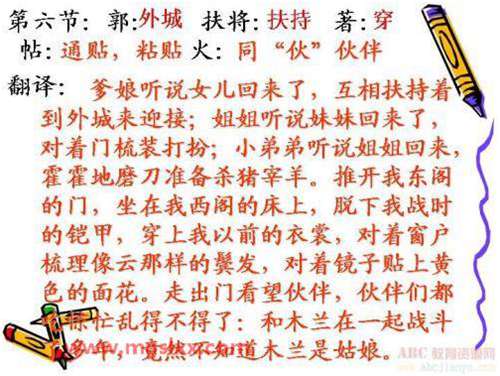 第六节：郭:外城 扶将：扶持 著：穿
帖：通贴，粘贴 火：同“伙”伙伴
翻译： 爹娘听说女儿回来了，互相扶持着
到外城来迎接；姐姐听说妹妹回来了，
对着门梳装打扮；小弟弟听说姐姐回来，
霍霍地磨刀准备杀猪宰羊。推开我东阁
的门，坐在我西阁的床上，脱下我战时
的铠甲，穿上我以前的衣裳，对着窗户
梳理像云那样的鬓发，对着镜子贴上黄
色的面花。走出门看望伙伴，伙伴们都
忙乱得不得了：和木兰在一起战斗
多年，竟然不知道木兰是姑娘。
ABC 教育资源网